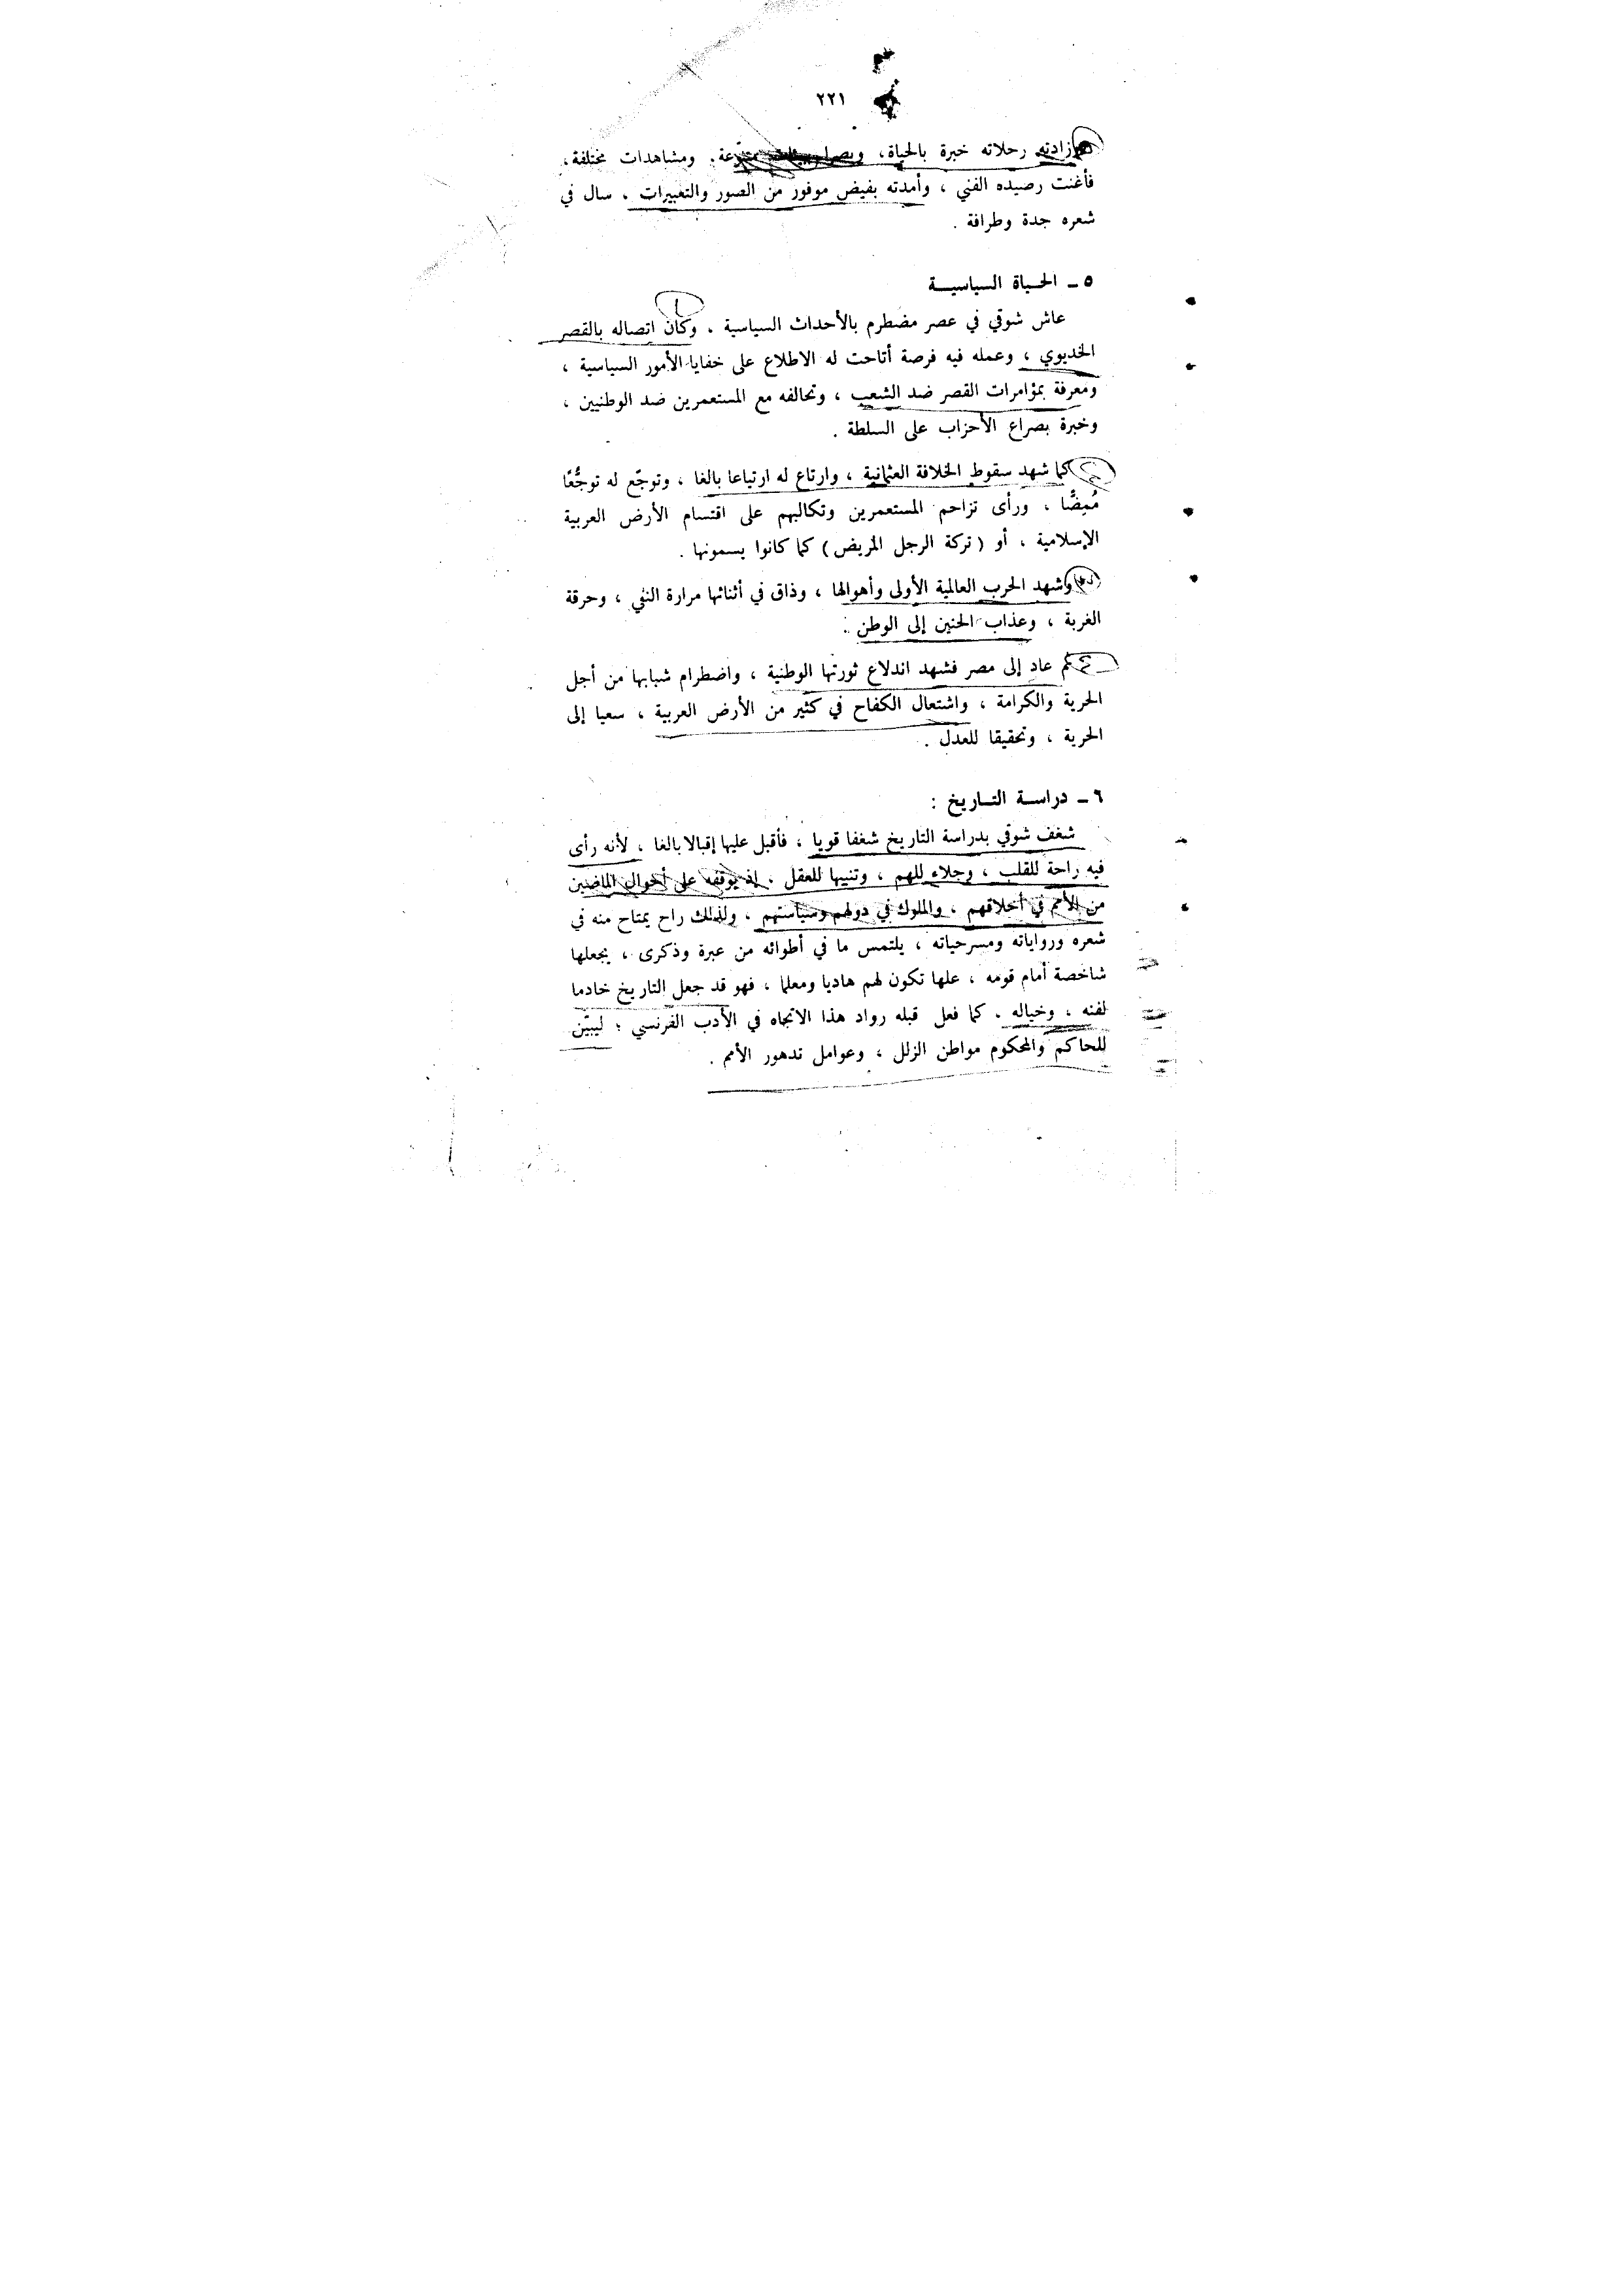 ٢٢١
زادته رحلاته خبرة بالحياة، وبصرا متنوعة. ومشاهدات مختلفة،
فأغنت رصيده الفني ، وأمدته بفيض موفور من الصور والتعبيرات . سال في
شعره جدة وطرافة .
٥ ــ الحياة السياسية
عاش شوقي في عصر مضطرم بالأحداث السياسية . وكان اتصاله بالقصر
الخديوي ، وعمله فيه فرصة أتاحت له الاطلاع على خفايا الأمور السياسية ،
ومعرفة بمؤامرات القصر ضد الشعب ، وتحالفه مع المستعمرين ضد الوطنيين ،
وخبرة بصراع الأحزاب على السلطة .
كما شهد سقوط الخلافة العثمانية ، وارتاع له ارتياعا بالغا ، وتوجّع له توجُّعًا
مُمِضًّا ، ورأى تزاحم المستعمرين وتكالبهم على اقتسام الأرض العربية
الإسلامية ، أو (تركة الرجل المريض) كما كانوا يسمونها .
وشهد الحرب العالمية الأولى وأهوالها ، وذاق في أثنائها مرارة النفي ، وحرقة
الغربة ، وعذاب الحنين إلى الوطن .
ثم عاد إلى مصر فشهد اندلاع ثورتها الوطنية ، واضطرام شبابها من أجل
الحرية والكرامة ، واشتعال الكفاح في كثير من الأرض العربية ، سعيا إلى
الحرية ، وتحقيقا للعدل .
٦ ــ دراسة التاريخ :
شغف شوقي بدراسة التاريخ شغفا قويا ، فأقبل عليها إقبالا بالغا ، لأنه رأى
فيه راحة للقلب ، وجلاء للهم ، وتنبيها للعقل . إذ يوقفه على أحوال الماضين
من الأمم في أخلاقهم ، والملوك في دولهم وسياستهم ، ولذلك راح يمتاح منه في
شعره ورواياته ومسرحياته ، يلتمس ما في أطوائه من عبرة وذكرى ، يجعلها
شاخصة أمام قومه ، علها تكون لهم هاديا ومعلما ، فهو قد جعل التاريخ خادما
لفنه ، وخياله . كما فعل قبله رواد هذا الاتجاه في الأدب الفرنسي ؛ ليبيّن
للحاكم والمحكوم مواطن الزلل ، وعوامل تدهور الأمم .